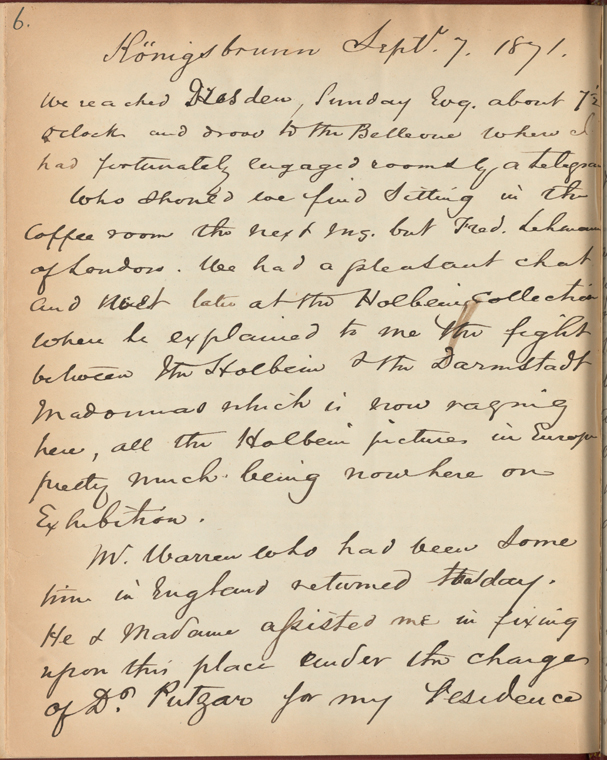 6.
Königsbrunn Septr. 7. 1871.
We reached Dresden, Sunday Evg. about 7½
oclock and drove to the Bellevue where I
had fortunately engaged rooms by a telegram
Who should we find sitting in the
Coffee room the next mg. but Fred. Lehmann
of London. We had a pleasant chat
and met later at the Holbein Collection
where he explained to me the fight
between the Holbein & the Darmstadt
Madonnas which is now raging
here, all the Holbein pictures in Europe
pretty much being nowhere on
Exhibition.
Mr. Warren who had been some
time in England returned that day.
He & Madame assisted me in fixing
upon this place under the charge
of Dr. Putzar for my residence